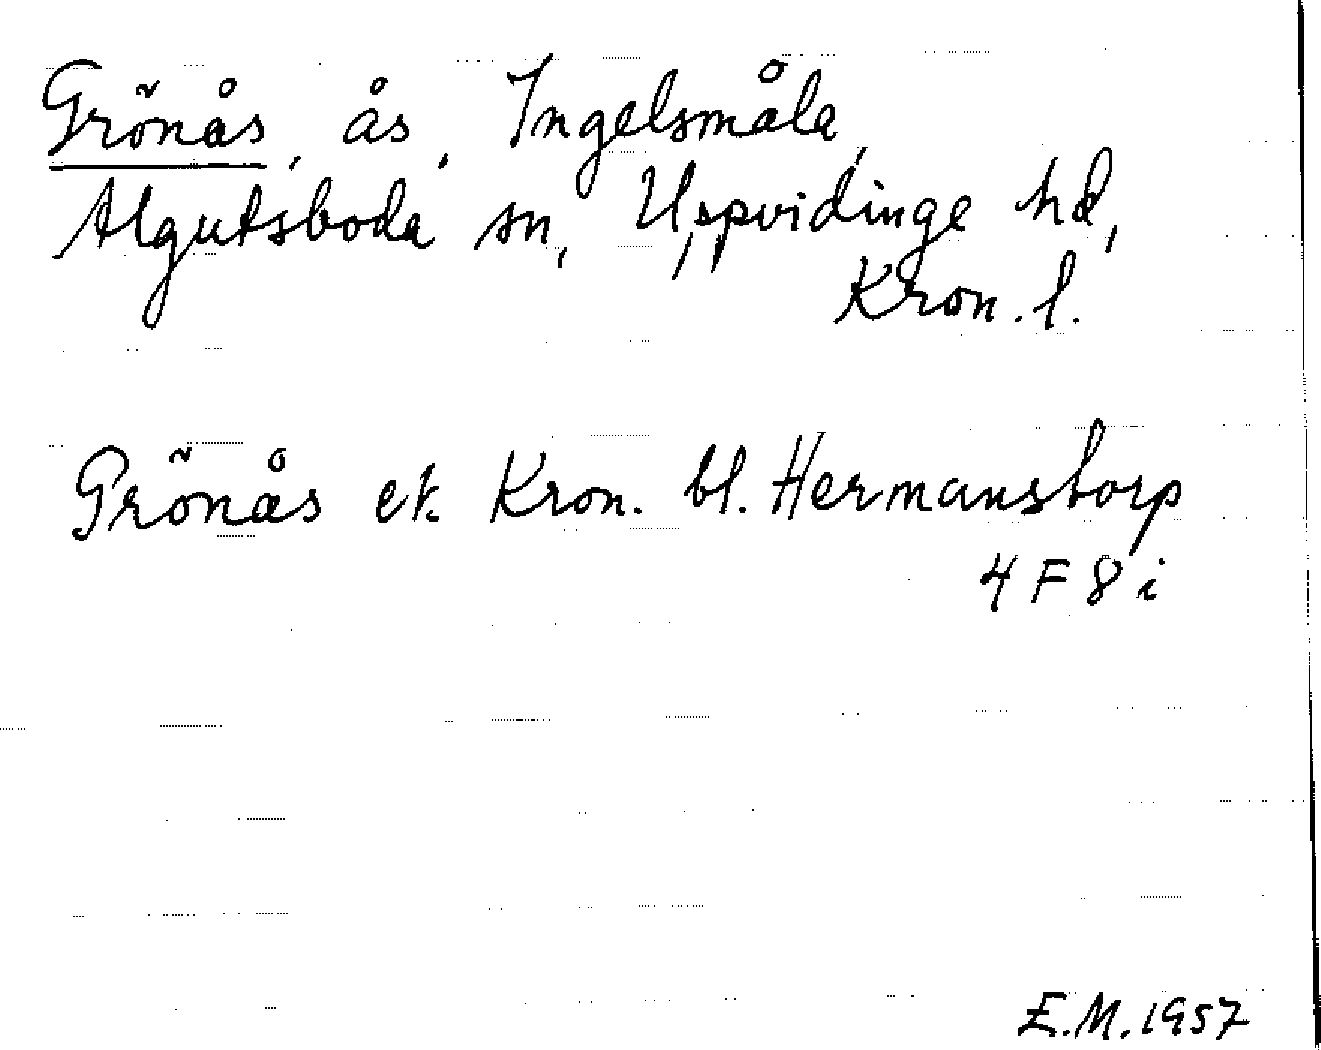 Grönås, ås, Ingelsmåla,
Algutsboda sn, Uppvidinge hd,
Kron. l.
Grönås ek. Kron. bl. Hermanstorp
4 F 8 i
E.M. 1957